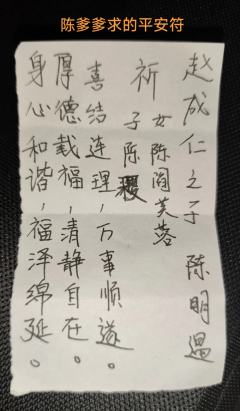 陈爹爹求的平安符
赵成仁之子 陈明遇
祈
女陈阎芙蓉
子陈
喜结连理,万事顺遂。
厚德载福,清静自在。
身心和谐,福泽绵延。